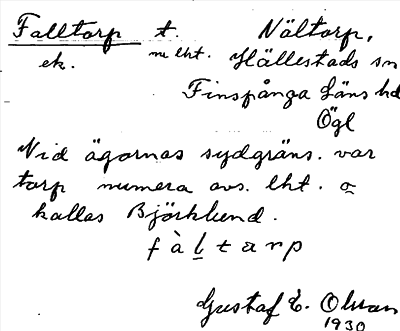 Falltorp t. Nältorp,
ek. nu lht. Hällestads sn
Finspånga Läns hd
Ögl
Vid ägornas sydgräns. var
torp numera avs. lht. o
kallas Björklund.
f à l t a r p
Gustaf E. Olsson
1930